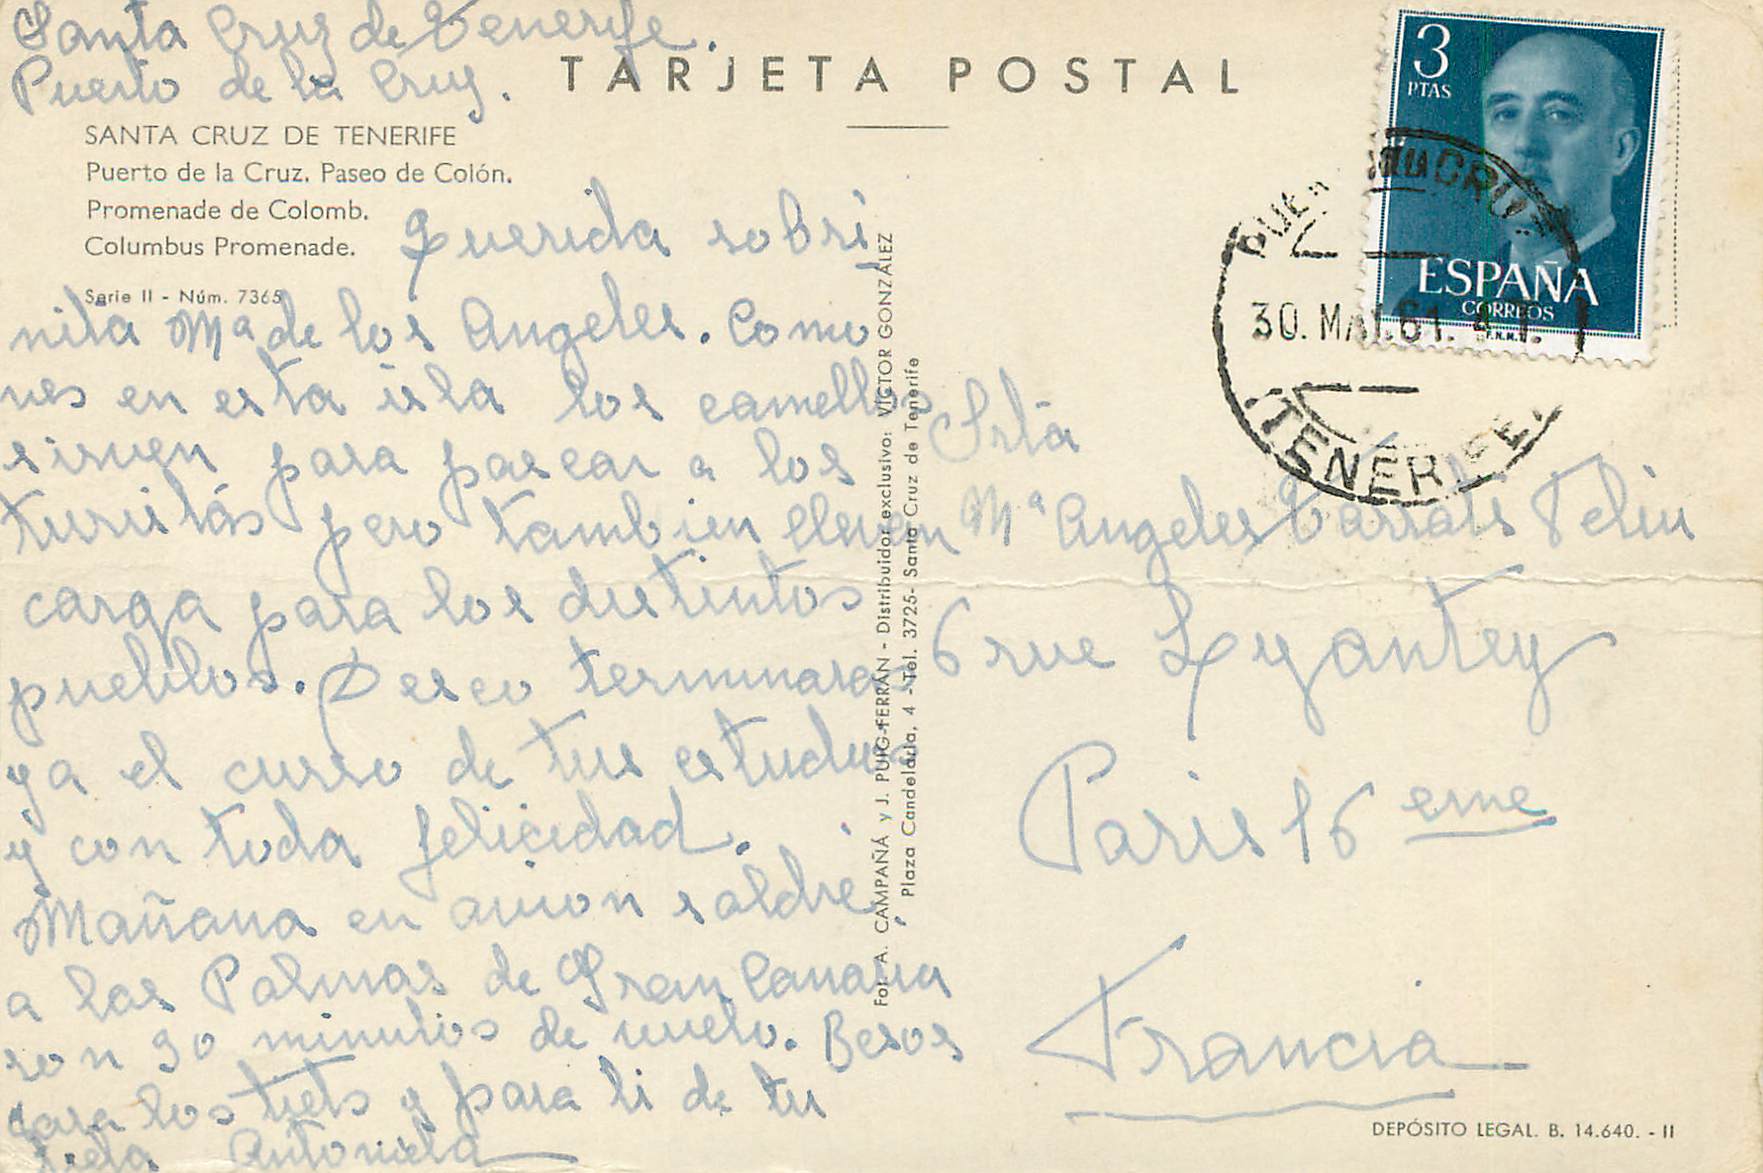 Santa Cruz de Tenerife.
Puerto de la Cruz.
TARJETA POSTAL
SANTA CRUZ DE TENERIFE
Puerto de la Cruz. Paseo de Colón.
Promenade de Colomb.
Columbus Promenade.
Serie II - Núm. 7365
Querida sobri
nita Mª de los Angeles. Como
ves en esta isla los camellos
sirven para pasear a los
turistas pero tambien llevan
carga para los distintos
pueblos. Deseo terminaras
ya el curso de tus estudios
y con toda felicidad.
Mañana en avion saldre
a las Palmas de Gran Canaria
son 30 minutos de vuelo. Besos
para los tiets y para ti de tu
tieta Antonieta
Fot. A. CAMPAÑÁ y J. PUIG-FERRÁN - Distribuidor exclusivo: VICTOR GONZÁLEZ
Plaza Candelaria, 4 - Tel. 3725 - Santa Cruz de Tenerife
3
PTAS
ESPAÑA
CORREOS
F.N.M.T.
30. MAI.61.
TENERIFE.
Srta
Mª Angeles Tarrats Feliu
6 rue Lyantey
Paris 16 eme
Francia
DEPÓSITO LEGAL. B. 14.640. - II